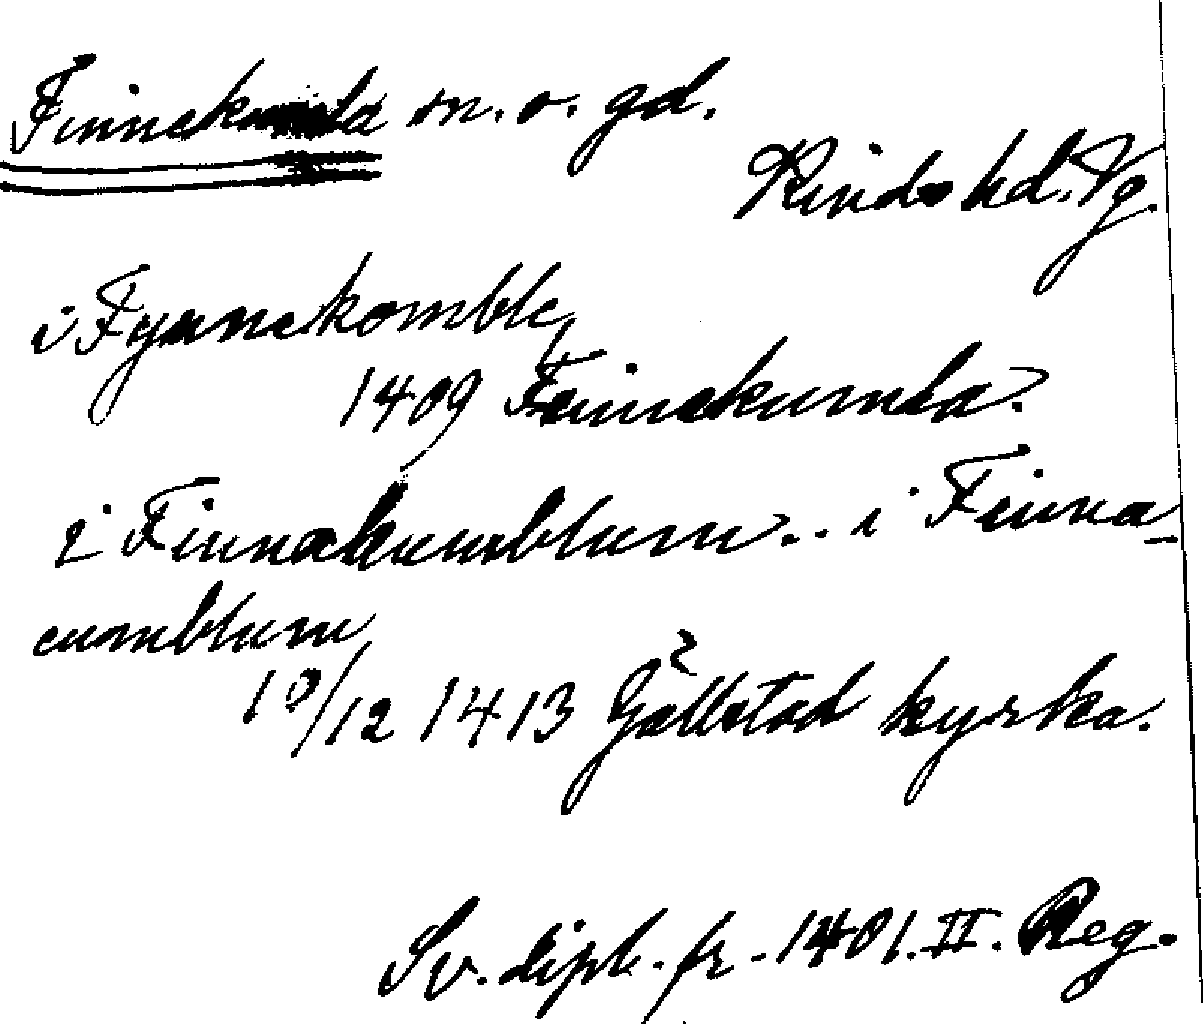 Finnekumla sn. o. gd.
Kinds hd. Vg.
i Fynnekomble,
1409 Finnekumla.
i Finnakumblum.. i Finna-
cumblum
10/12 1413 Gällstad kyrka.
Sv. dipl. fr. 1401. II. Reg.